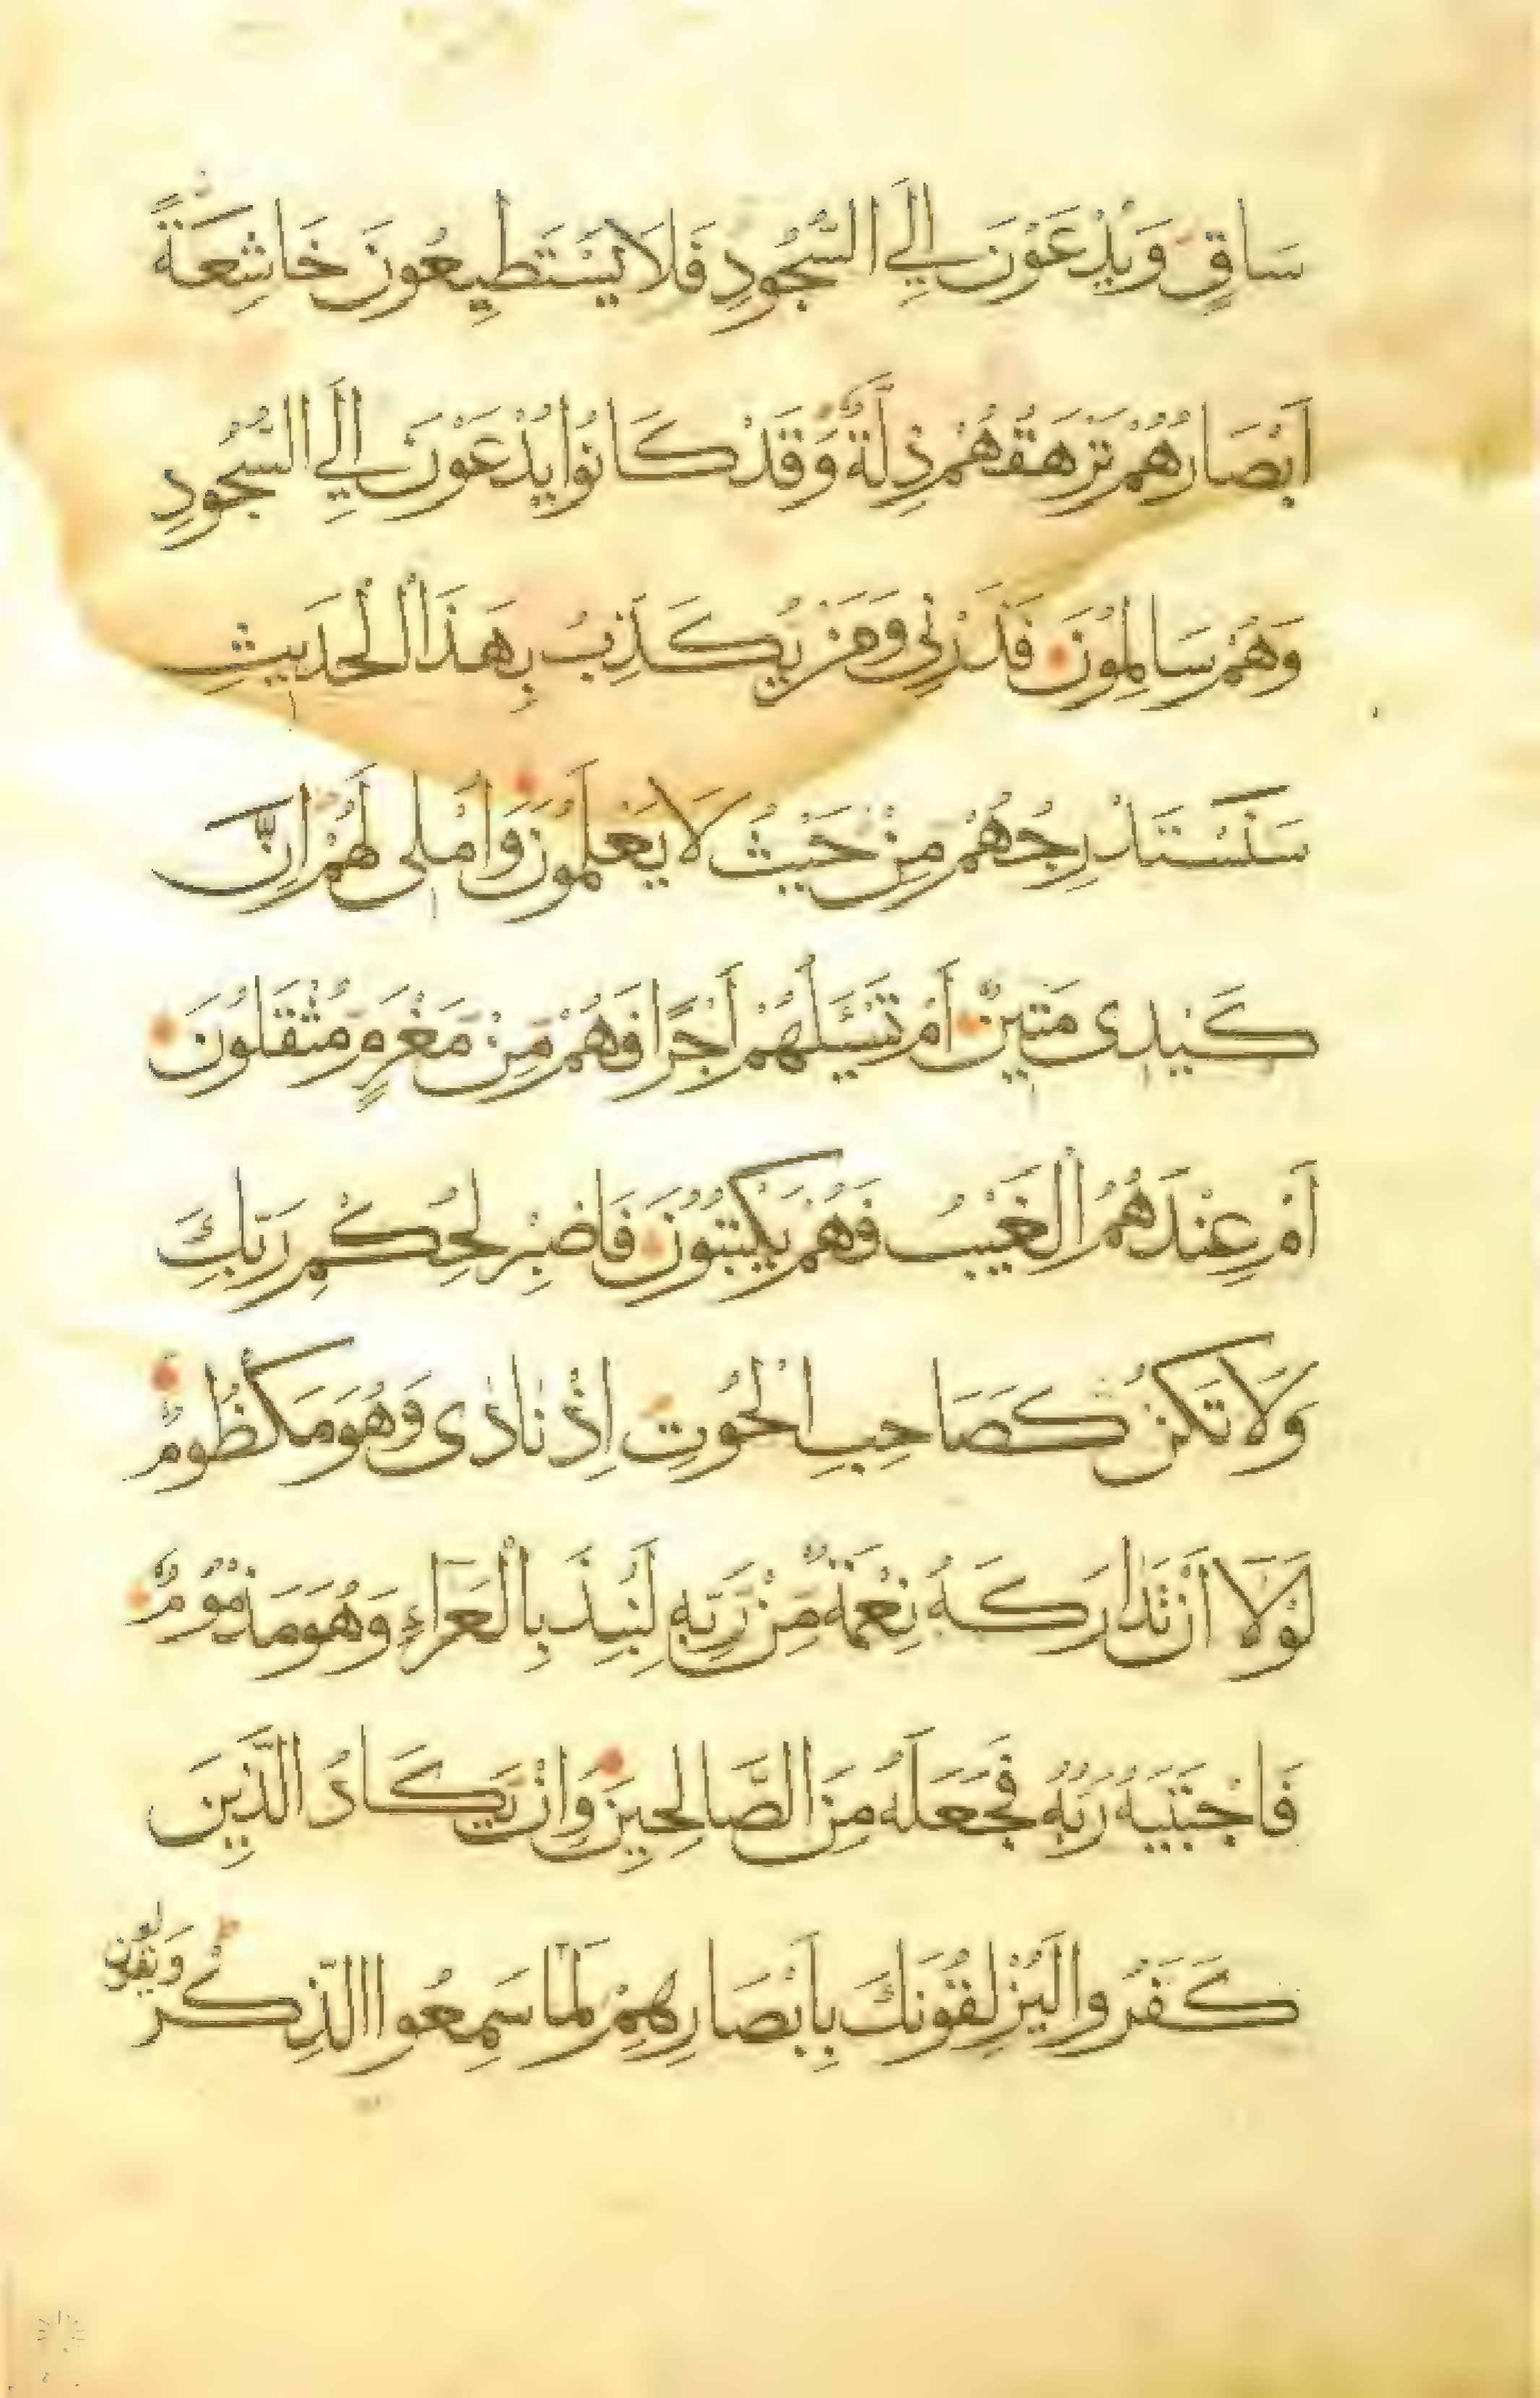 سَاقٍ وَيُدْعَوْنَ إِلَى السُّجُودِ فَلَا يَسْتَطِيعُونَ خَاشِعَةً
أَبْصَارُهُمْ تَرْهَقُهُمْ ذِلَّةٌ وَقَدْ كَانُوا يُدْعَوْنَ إِلَى السُّجُودِ
وَهُمْ سَالِمُونَ فَذَرْنِي وَمَنْ يُكَذِّبُ بِهَذَا الْحَدِيثِ
سَنَسْتَدْرِجُهُمْ مِنْ حَيْثُ لَا يَعْلَمُونَ وَأُمْلِى لَهُمْ إِنَّ
كَيْدِى مَتِينٌ أَمْ تَسْـَٔلُهُمْ أَجْرًا فَهُمْ مِنْ مَغْرَمٍ مُثْقَلُونَ
أَمْ عِنْدَهُمُ الْغَيْبُ فَهُمْ يَكْتُبُونَ فَاصْبِرْ لِحُكْمِ رَبِّكَ
وَلَا تَكُنْ كَصَاحِبِ الْحُوتِ إِذْ نَادَى وَهُوَ مَكْظُومٌ
لَوْلَا أَنْ تَدَارَكَهُ نِعْمَةٌ مِنْ رَبِّهِ لَنُبِذَ بِالْعَرَاءِ وَهُوَ مَذْمُومٌ
فَاجْتَبَيهُ رَبُّهُ فَجَعَلَهُ مِنَ الصَّالِحِينَ وَإِنْ يَكَادُ الَّذِينَ
كَفَرُوا لَيُزْلِقُونَكَ بِأَبْصَارِهِمْ لَمَّا سَمِعُوا الذِّكْرَ وَيَقُولُونَ